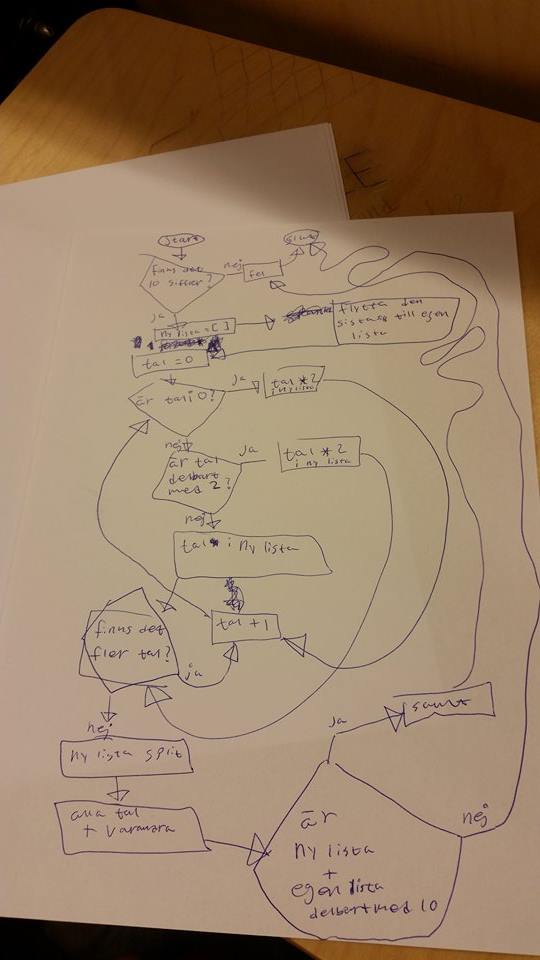 Start
slut
finns det
10 siffror?
nej
fel
ja
ny lista = [ ]
flytta den
sista till egen
lista
tal = 0
är tal i 0?
ja
tal * 2
i ny lista
nej
är tal
delbart
med 2?
ja
tal * 2
i ny lista
nej
tal i ny lista
finns det
fler tal?
ja
tal + 1
nej
ny lista split
alla tal
+ varandra
är
ny lista
+
egen lista
delbart med 10
ja
sant
nej
E